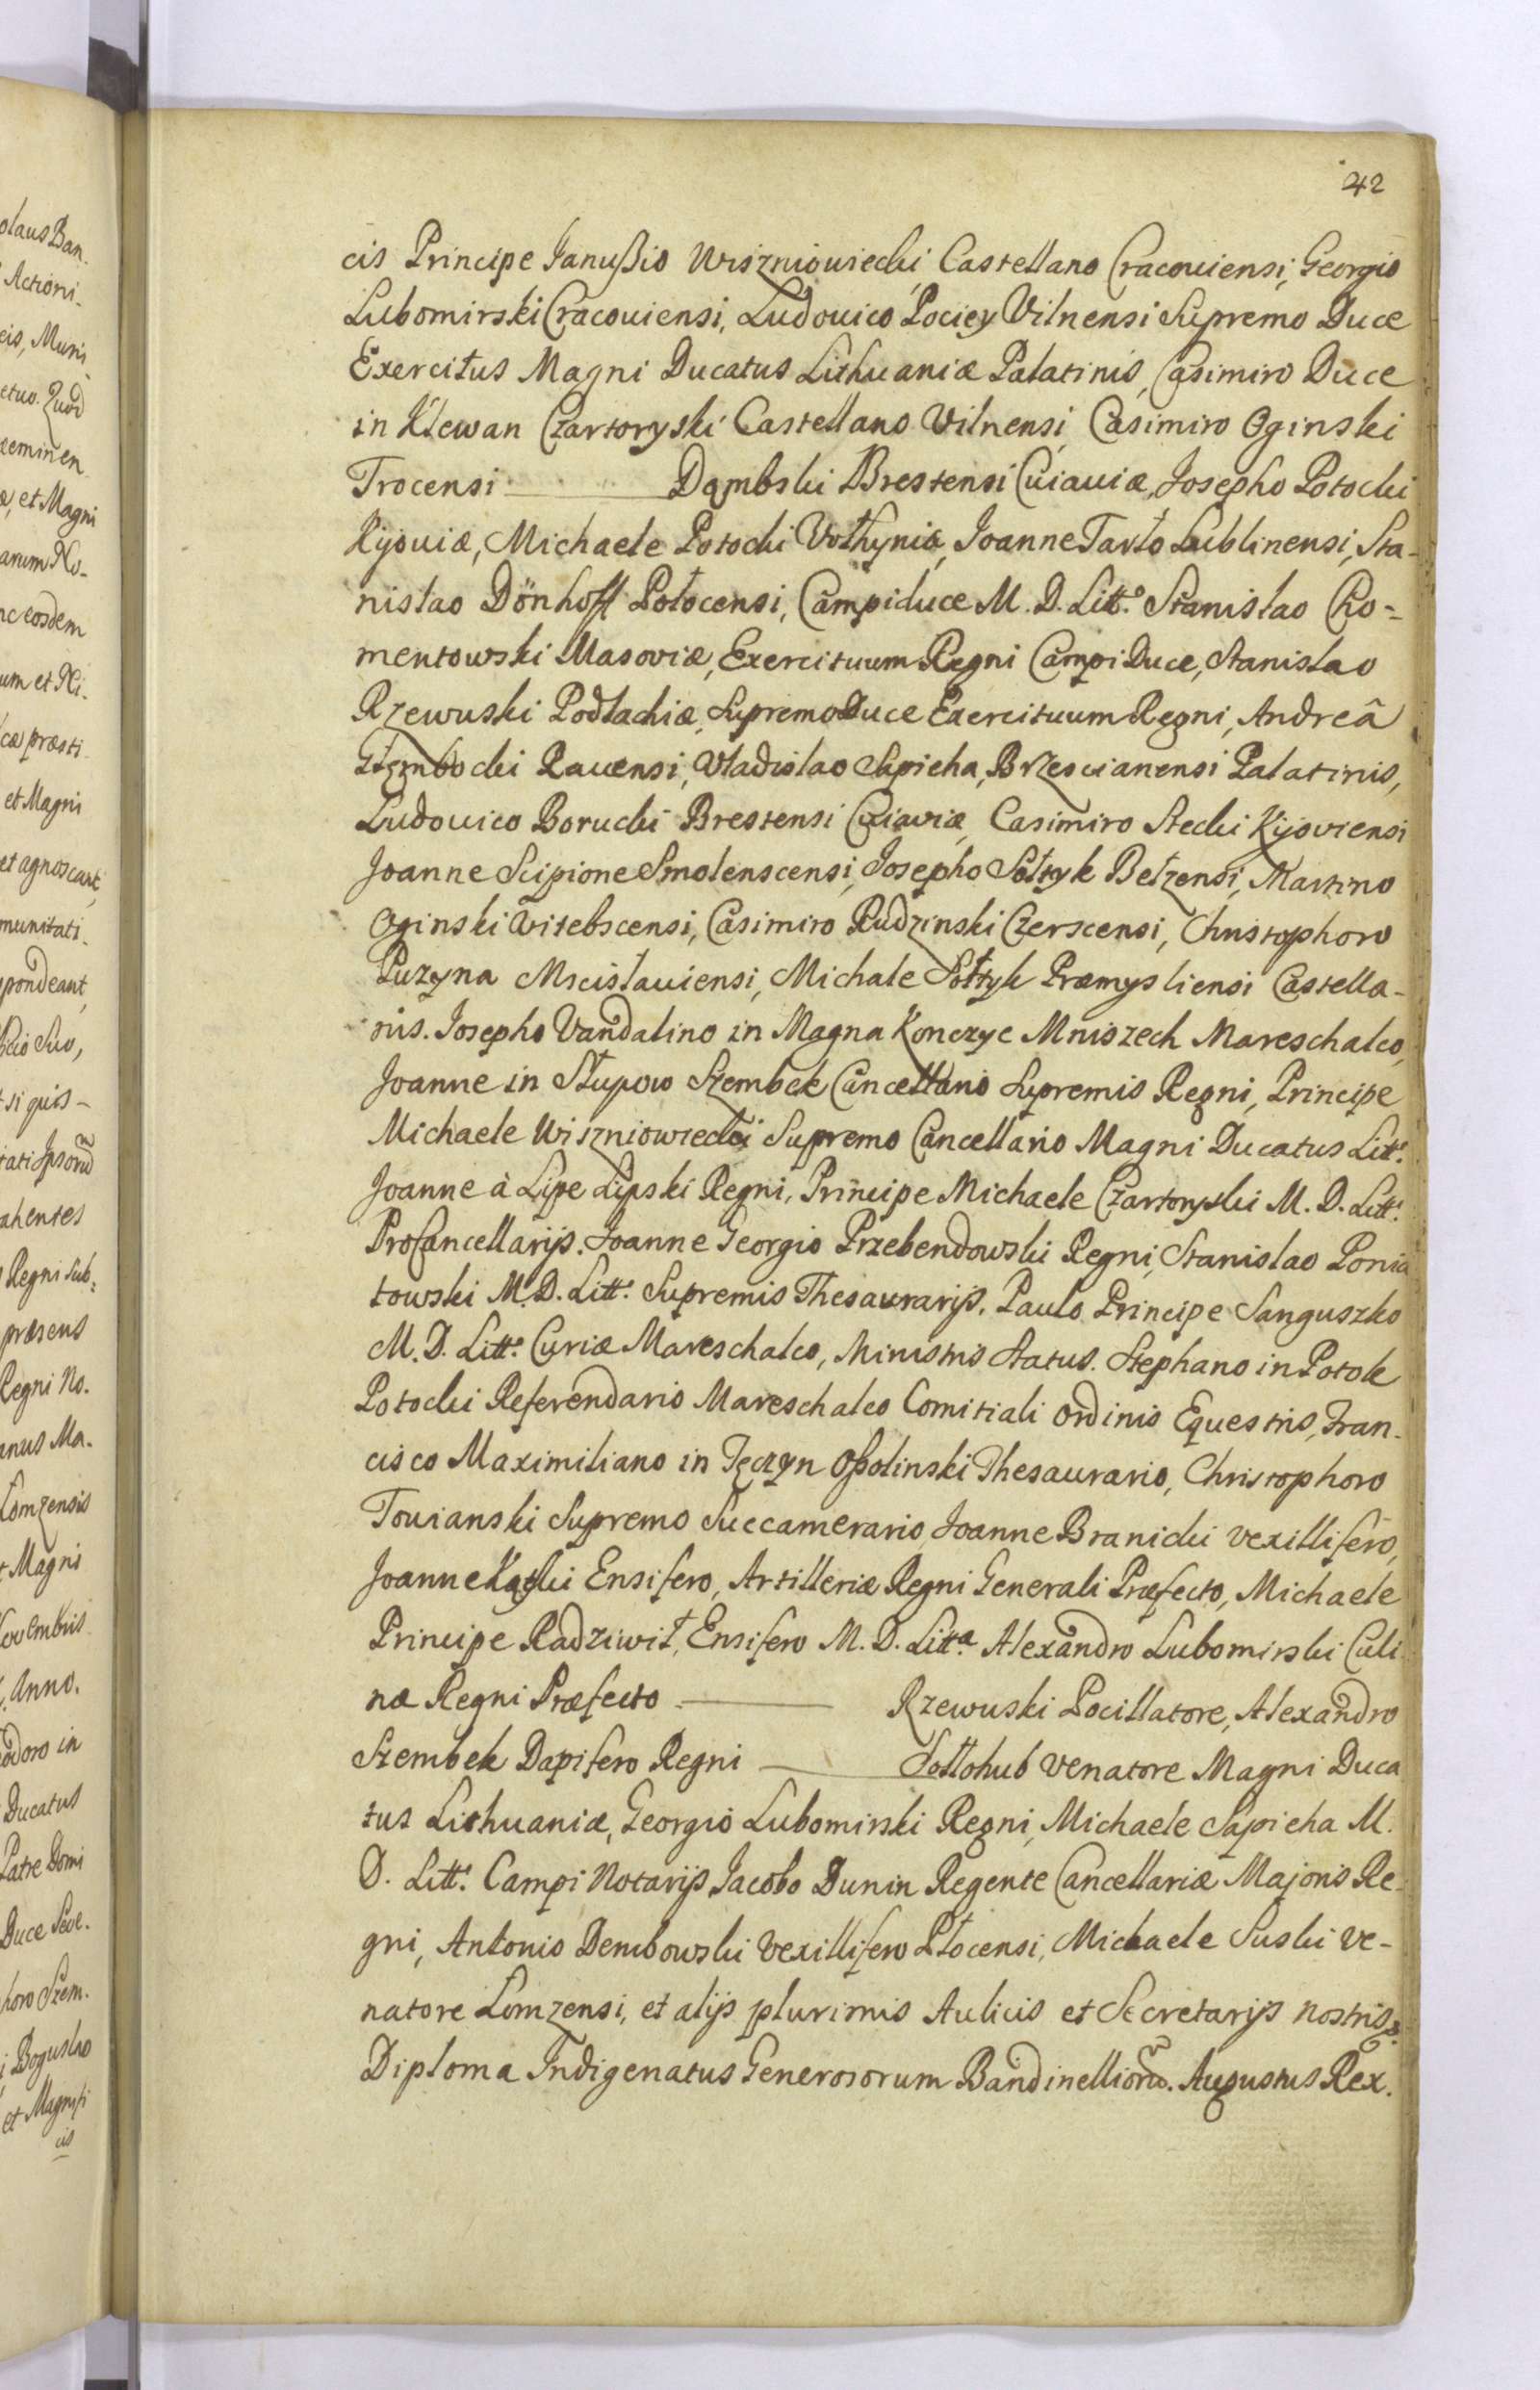 olaus Ban-
Actioni-
eis, Muni-
etuo. Quod
eminen
æ, et Magni
anum No-
nc eosdem
um et Ni-
cæ præsti-
et Magni
et agnoscant,
munitati-
pondeant,
bcio Suo,
si quis-
tati Ipsorũ
ahentes
Regni Sub=
præsens
Regni No.
anus Ma.
Lomzensis
Magni
vembris
Anno.
odoro in
Ducatus
Patre Domi
Duce Seve.
horo Szem.
Boguslao
et Magnifi
cis
42
cis Principe Janußio Wiszniowiecki Castellano Cracouiensi, Georgio
Lubomirski Cracouiensi, Ludouico Pociey Vilnensi Supremo Duce
Exercitus Magni Ducatus Lithuaniæ Palatinis, Casimiro Duce
in Klewan Czartoryski Castellano Vilnensi, Casimiro Oginski
Trocensi ——— Dąmbski Brestensi Cuiauiæ, Josepho Potocki
Kijouiæ, Michaele Potocki Vołhyniæ, Joanne Tarło Lublinensi, Sta-
nislao Dönhoff Połocensi, Campiduce M. D. Litt. Stanislao Cho=
mentowski Masoviæ, Exercituum Regni Campi Duce, Stanislao
Rzewuski Podlachiæ, Supremo Duce Exercituum Regni, Andreâ
Głembocki Rauensi, Vladislao Sapieha, Brzescianensi Palatinis,
Ludouico Borucki Brestensi Cuiaviæ, Casimiro Stecki Kijoviensi
Joanne Scipione Smolenscensi, Josepho Sołtyk Bełzensi, Martino
Oginski Vitebscensi, Casimiro Rudzinski Czerscensi, Christophoro
Puzyna Mscisłaviensi, Michale Sołtyk Præmysliensi Castella-
nis. Josepho Vandalino in Magna Konczyc Mniszech Mareschalco,
Joanne in Słupow Szembek Cancellario Supremis Regni, Principe
Michaele Wiszniowiecki Supremo Cancellario Magni Ducatus Litt.
Joanne à Lipe Lipski Regni, Principe Michaele Czartoryski M. D. Litt.
ProCancellarijs. Joanne Georgio Przebendowski Regni, Stanislao Ponia
towski M. D. Litt. Supremis Thesaurarijs. Paulo Principe Sanguszko
M. D. Litt. Curiæ Mareschalco, Ministris Status. Stephano in Potok
Potocki Referendario Mareschalco Comitiali Ordinis Equestris, Fran-
cisco Maximiliano in Tęczyn Oßolinski Thesaurario, Christophoro
Touianski Supremo Succamerario, Joanne Branicki Vexillifero,
Joanne Kątski Ensifero, Artilleriæ Regni Generali Præfecto, Michaele
Principe Radziwił, Ensifero M. D. Litt.ª Alexandro Lubomirski Culi
næ Regni Præfecto ——— Rzewuski Pocillatore, Alexandro
Szembek Dapifero Regni ——— Sołłohub Venatore Magni Duca
tus Lithuaniæ, Georgio Lubomirski Regni, Michaele Sapieha M.
D. Litt. Campi Notarijs Jacobo Dunin Regente Cancellariæ Majoris Re-
gni, Antonio Dembowski Vexillifero Płocensi, Michaele Suski Ve-
natore Lomzensi, et alijs plurimis Aulicis et Secretarijs nostris.
Diploma Indigenatus Generosorum Bandinelliorũ. Augustus Rex.